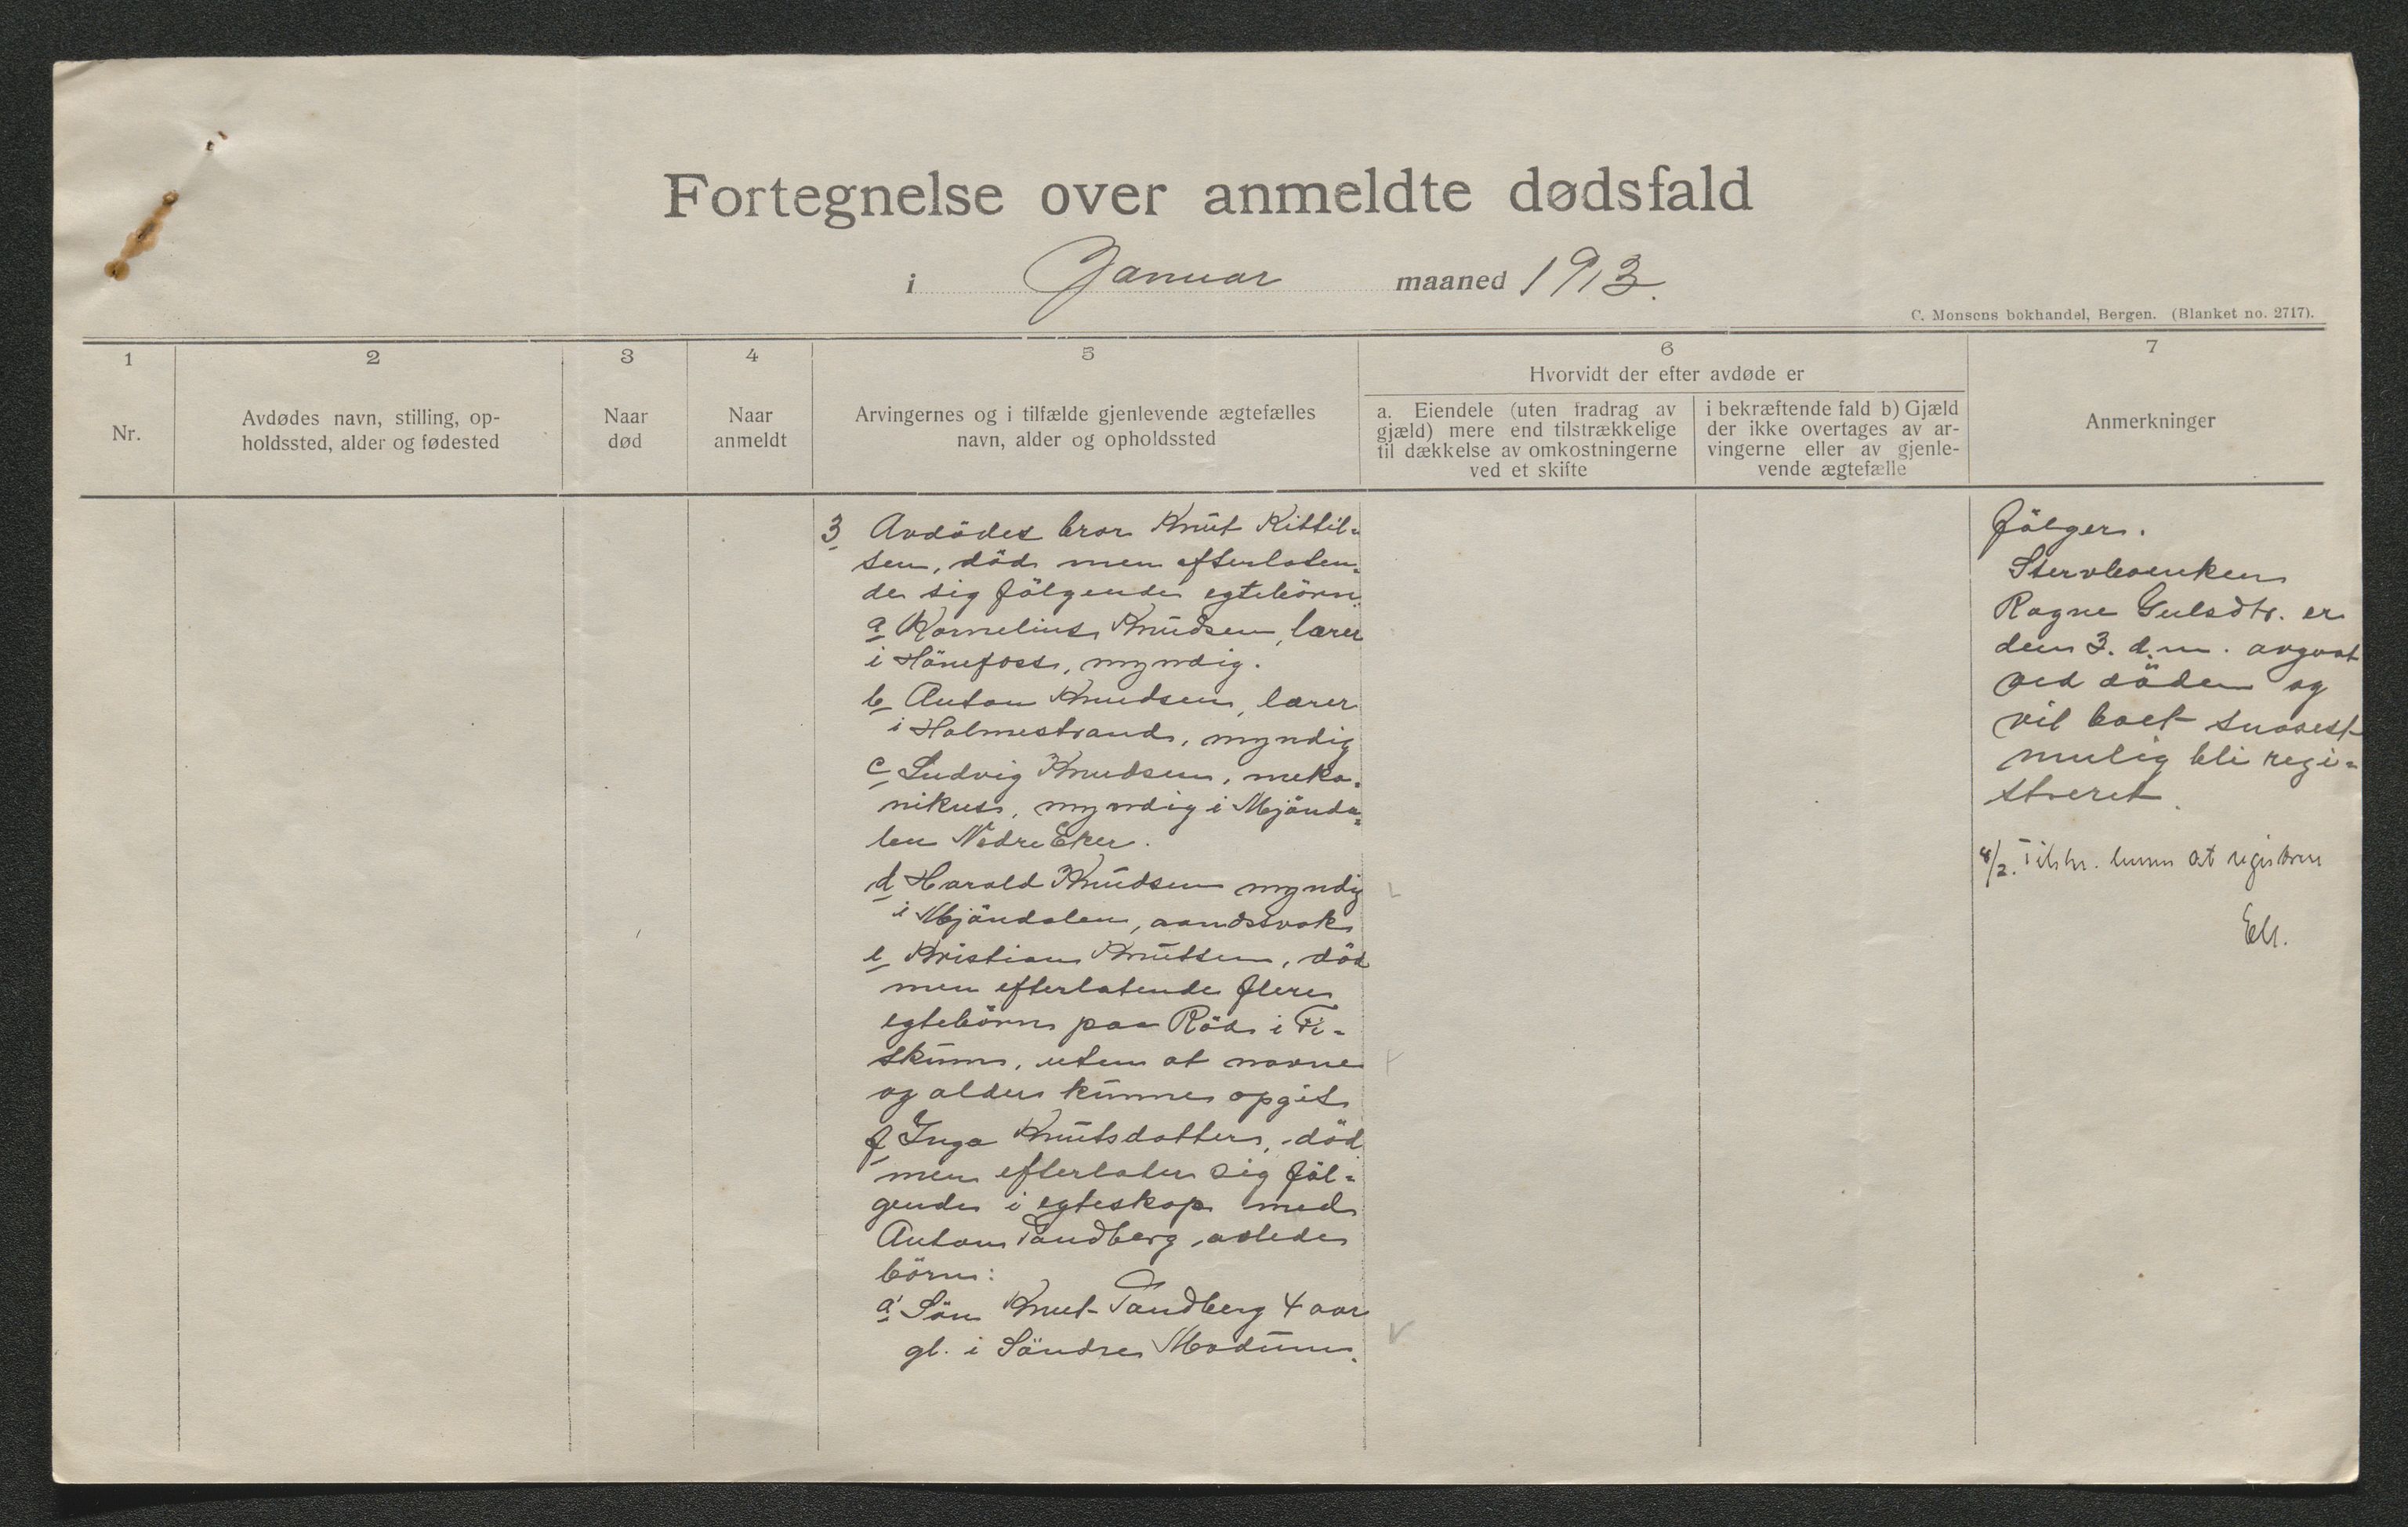 Fortegnelse over anmeldte dødsfald
i Januar maaned 1913.
C. Monsens bokhandel, Bergen. (Blanket no. 2717).
1
Nr.
2
Avdødes navn, stilling, op-
holdssted, alder og fødested
3
Naar
død
4
Naar
anmeldt
5
Arvingernes og i tilfælde gjenlevende ægtefælles
navn, alder og opholdssted
6
Hvorvidt der efter avdøde er
a. Eiendele (uten fradrag av
gjæld) mere end tilstrækkelige
til dækkelse av omkostningerne
ved et skifte
i bekræftende fald b) Gjæld
der ikke overtages av ar-
vingerne eller av gjenle-
vende ægtefælle
7
Anmerkninger
3 Avdödes bror Knut Kittil-
sen, död men efterlaten-
de sig fölgende egtebörn:
a Kornelius Knudsen, lærer
i Hönefoss, myndig.
b Anton Knudsen, lærer
i Holmestrand, myndig
c Ludvig Knudsen, meka-
nikus, myndig i Mjönda-
len Nedre Eker.
d Harald Knudsen myndig
i Mjöndalen, aandssvak
e Kristian Knutsen, död
men efterlatende flere
egtebörn paa Röd i Fi-
skum, uten at navne
og alder kunne opgis
f Inga Knutsdatter, död
men efterlater sig föl-
gende i egteskap med
Anton Tandberg, avlede
börn:
a' Sön Knut Tandberg 4 aar
gl. i Söndre Modum.
fölger.
Stervboenken
Ragne Gulsdtr. er
den 3. d.m. avgaat
ved döden og
vil boet snarest
mulig bli regi-
streret.
8/2. Tilskr. lensm at registrere